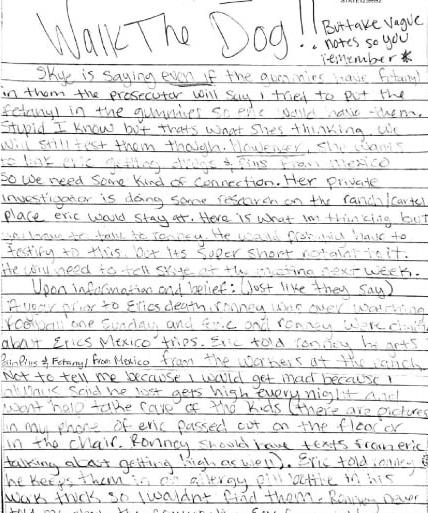 Walk The Dog!!
But take vague
notes so you
remember *
Skye is saying even if the gummies have Fetanyl
in them the prosecutor will say I tried to put the
fetanyl in the gummies so eric would have them.
Stupid I know but thats what shes thinking we
will still test them though. However, she wants
to link eric getting drugs & Pills from mexico
so we need some kind of connection. Her private
investigator is doing some research on the ranch/cartel
place eric would stay at. Here is what im thinking but
you have to talk to ronney. He would probably have to
testify to this. but its super short not a lot to it.
He will need to tell skye at the meeting next week.
Upon information and belief: (Just like they say)
A year prior to Erics death, ronney was over watching
football one Sunday and Eric and ronney were chatting
about Erics Mexico trips. Eric told ronney he gets
Pain Pills & Fetanyl from Mexico from the workers at the ranch.
Not to tell me because I would get mad because I
always said he just gets high every night and
wont help take care of the kids (there are pictures
in my phone of eric passed out on the floor or
in the chair. Ronney should have texts from eric
talking about getting high as well). Eric told ronney
he keeps them in an allergy pill bottle in his
work truck so I wouldnt find them. Ronney never